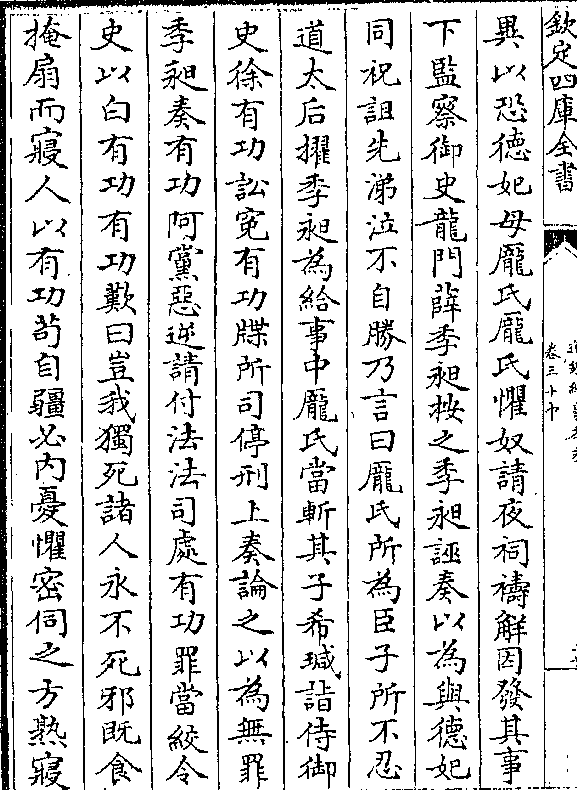 欽定四庫全書
卷三十中
異以恐德妃母龐氏龐氏懼奴請夜祠禱解因發其事
下監察御史龍門薛季昶按之季昶誣奏以為與德妃
同祝詛先涕泣不自勝乃言曰龐氏所為臣子所不忍
道太后擢季昶為給事中龐氏當斬其子希瑊詣侍御
史徐有功訟寃有功牒所司停刑上奏論之以為無罪
季昶奏有功阿黨惡逆請付法法司處有功罪當絞令
史以白有功有功歎曰豈我獨死諸人永不死邪既食
掩扇而寢人以有功苟自彊必內憂懼密伺之方熟寢